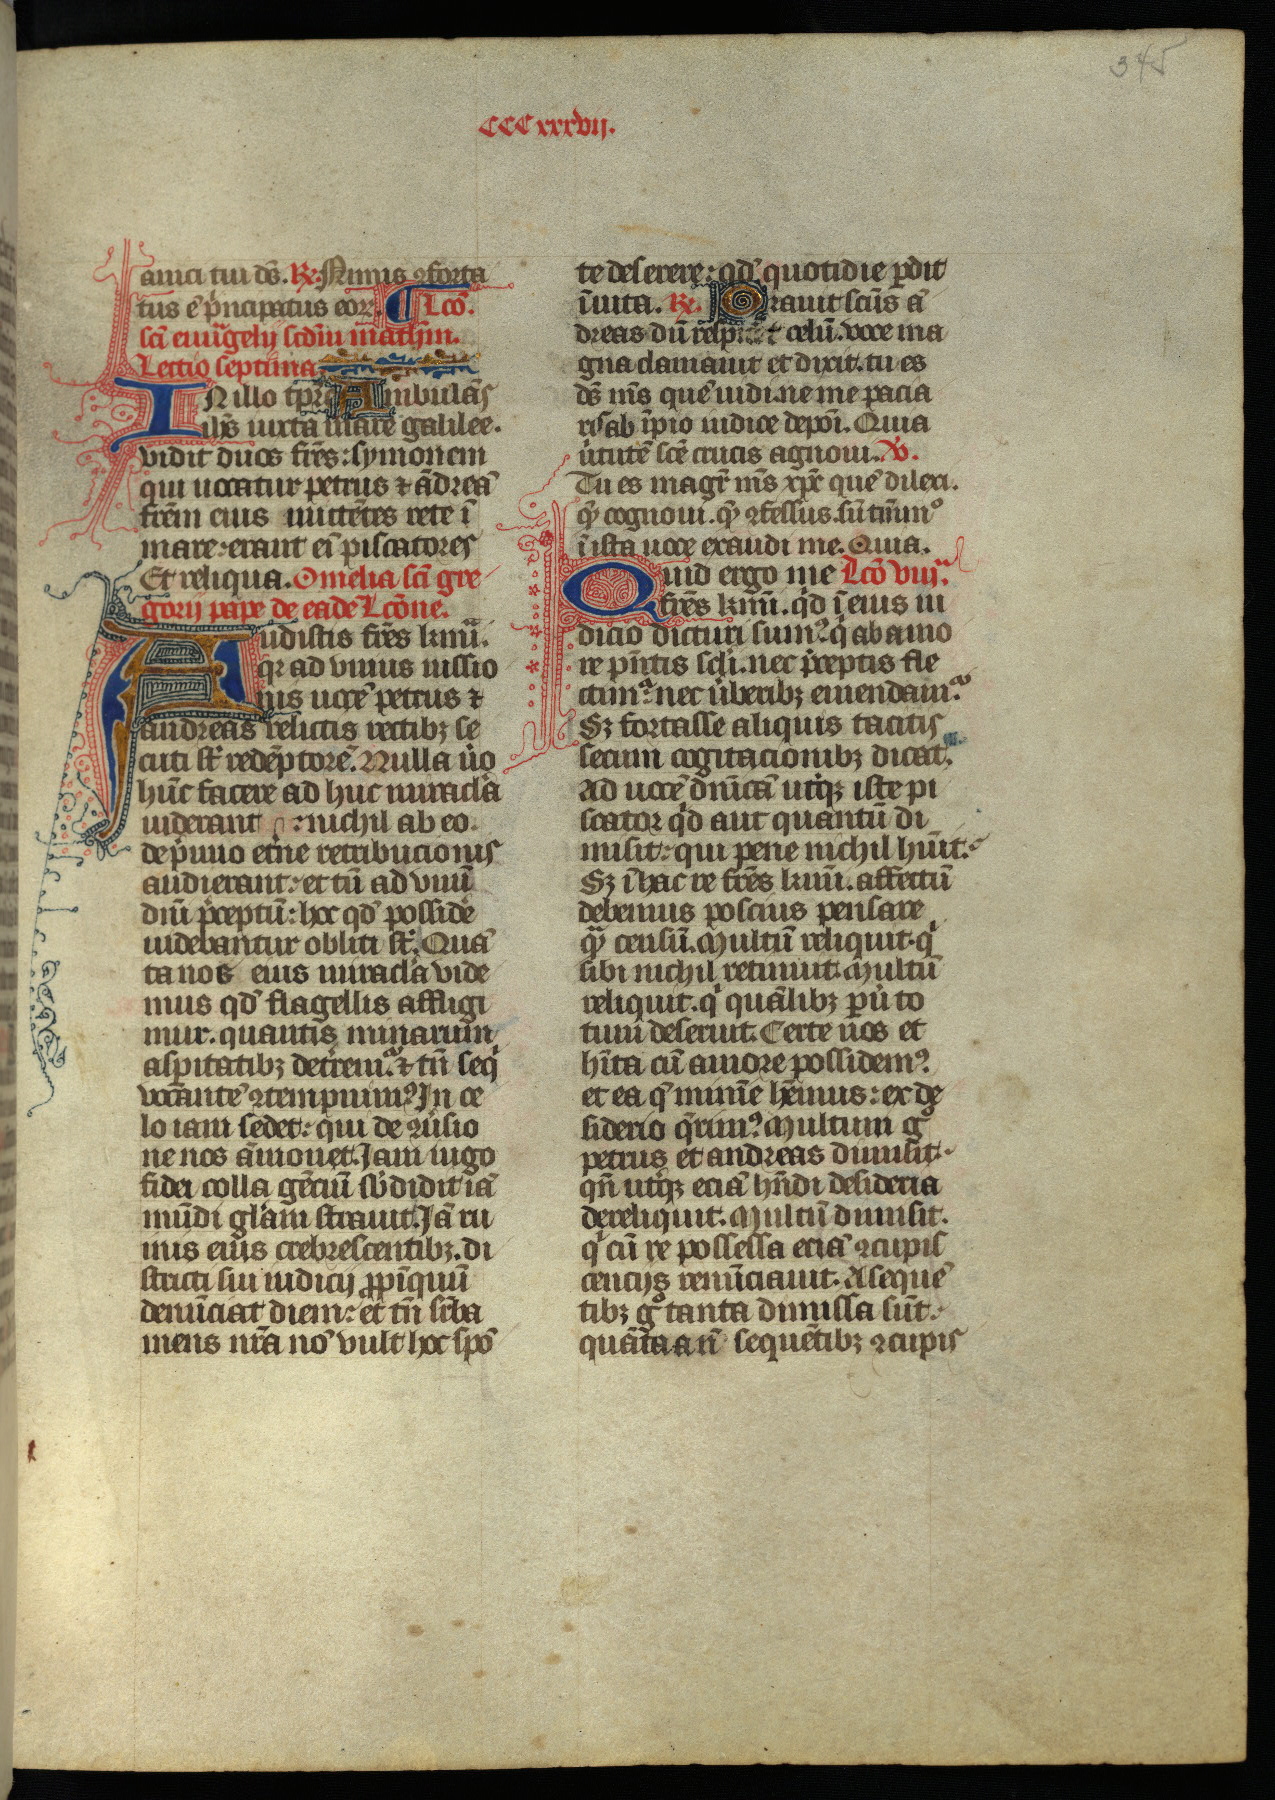 345
CCCxxxvij.
amici tui ds̄. R̷. Nimis ꝯforta
tus ē p̄ncipatus eoꝝ. ¶ Lcō.
sc̄i euāgelij scd̄m mathm̄.
Lectio septima
IN illo tp̄r̄ Ambulās
ih̄s iuxta mare galilee.
vidit duos fr̄es: symonem
qui uocatur petrus ⁊ ādreā
frēm eius mittētes rete ī
mare: erant ei̅ piscatores
Et reliqua. Omelia sc̄i gre
gorij pape de eadē Lcōne.
Audistis fr̄es kmī.
qꝛ ad vnius iussio
nis uocē petrus ⁊
andreas relictis rectibꝫ se
cuti st̄ redēptorē. Nulla u̇o
hūc facere ad huc miracl̄a
uiderant : nichil ab eo.
de p̄mio et̄ne retribucionis
audierant: et tn̄ ad vnū
dn̄i p̄ceptū: hoc qd̄ posside
uidebantur obliti st̄. Quā
ta nos eius miracl̄a vide
mus qd̄ flagellis affligi
mur. quantis minarum
asp̄itatibꝫ det̄rem̅. ⁊ tn̄ seq̄
vocante ꝯtempnim⁹. In ce
lo iam sedet: qui de ꝯu̇sio
ne nos āmonet. Iam iugo
fidei colla gēciū sb̄didit iā
mūdi gl̄am strauit. Iā ru
inis eius crebrescentibꝫ. di
stricti sui iudicij ꝓpīquū
denūciat diem: et tn̄ sup̄ba
mens nr̄a nō vult hoc spō
te deserere: qd̄ quotidie ꝑdit
īuita. R̷. Orauit sc̄us ā
dreas dū resp̄ic̄et celū. voce ma
gna clamauit et dixit. tu es
ds̄ ms̄ quē uidi. ne me pacia
ris ab īpio iudice depōi. Quia
u̇tutē sc̄e crucis agnoui. V̷.
Tu es magr̄ ms̄ xp̄e quē dilexi.
qm̄ cognoui. qm̄ ꝯfessus sū tm̄m⁰
ī ista uoce exaudi me. Quia.
Quid ergo nie Lcō viijᵃ.
fr̄es kmī. qd̄ ī eius iu
dicio dicturi sum⁹. qⁱ ab amo
re p̄ntis sc̄li. nec p̄ceptis fle
ctim̅. nec u̇beribꝫ emendam̅.
Sꝫ fortasse aliquis tacitis
secum cogitacionibꝫ dicat.
Ad uocē dn̄icā utqꝫ iste pi
scator qd̄ aut quantū di
misit: qui pene nichil hūit.
Sꝫ ī hac re fr̄es kmī. affectū
debemus pocius pensare
qm̄ censū. Multū reliquit. qⁱ
sibi nichil retinuit. Multū
reliquit. qⁱ quālibꝫ ꝑu̇ to
tum deseruit. Certe nos et
hīta cū amore possidem⁹.
et ea q̄ minīe hēmus: ex de
siderio q̄rim⁹. Multum gͦ
petrus et andreas dimisit.
qn̄ utqꝫ eciā hn̄di desideria
dereliquit. Multū dimisit.
qⁱ cū re possessa eciā ꝯcupis
cencijs renūciauit. A sequē
tibꝫ gͦ tanta dimissa sūt.
quāta a n̄ sequētibꝫ ꝯcupis